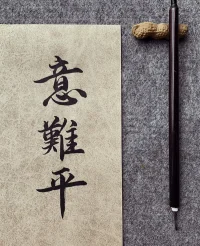 意難平